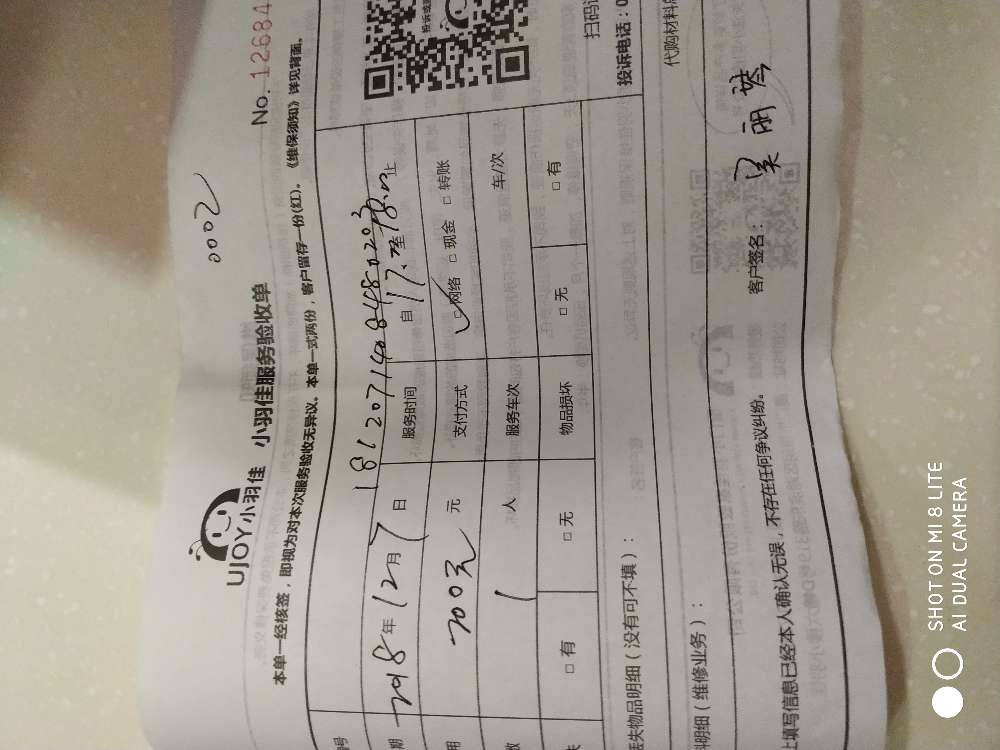 0002
No. 12684
UJOY小羽佳 小羽佳服务验收单
本单一经核签，即视为对本次服务验收无异议。本单一式两份，客户留存一份(红)。《维保须知》详见背面。
号
期 2018年12月7日 服务时间 自17.至 止
用 200元 元 支付方式 □网络 □现金 □转账
数 1 人 服务车次 车/次
失 □有 □无 物品损坏 □无 □有
扫码
投诉电话：0
丢失物品明细（没有可不填）：
料明细（维修业务）：
代购材料
上填写信息已经本人确认无误，不存在任何争议纠纷。 客户签名：
SHOT ON MI 8 LITE
AI DUAL CAMERA